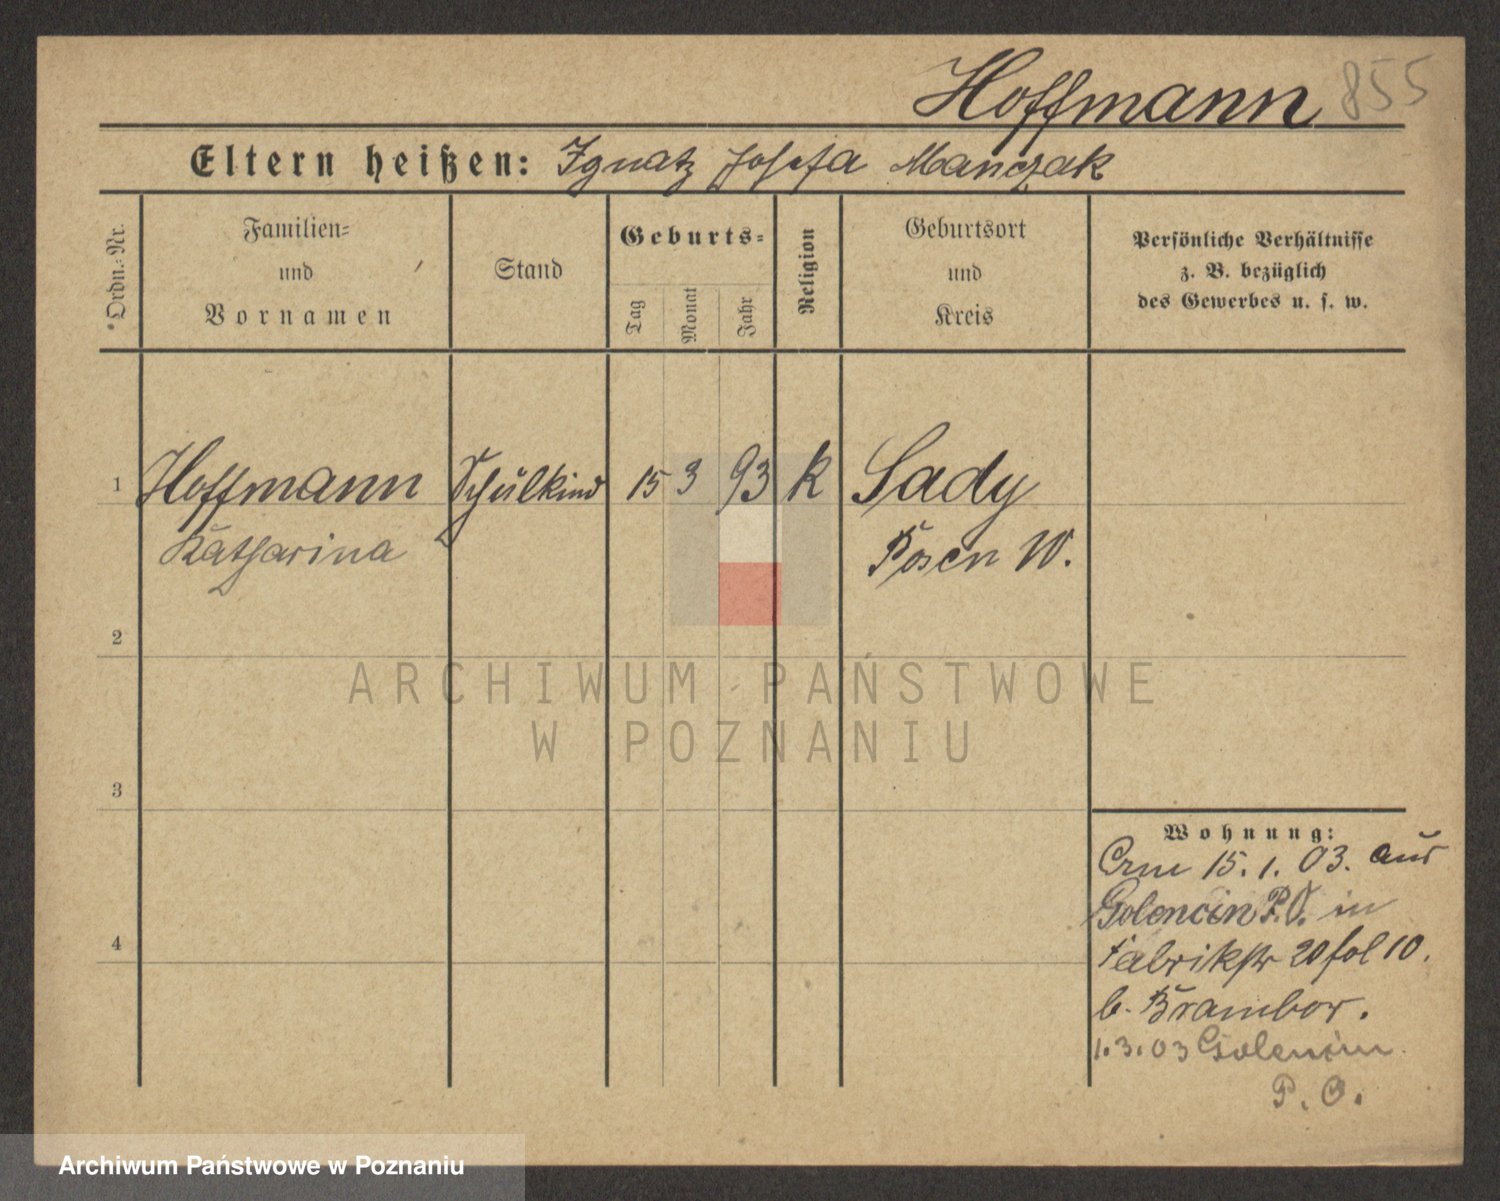 Hoffmann 855
Eltern heißen: Ignatz Josefa Manczak
Ordn.-Nr.
Familien-
und
Vornamen
Stand
Geburts-
Tag
Monat
Jahr
Religion
Geburtsort
und
Kreis
Persönliche Verhältnisse
z. B. bezüglich
des Gewerbes u. s. w.
1 Hoffmann Schulkind 15 3 93 k Sady
Katharina Posen W.
2
ARCHIWUM PAŃSTWOWE
W POZNANIU
3
Wohnung:
15. 1. 03. aus
Golencin P.O. in
Fabrikstr 20 fol 10.
b. Brambor.
1.3.03 Golencin
P. O.
4
Archiwum Państwowe w Poznaniu